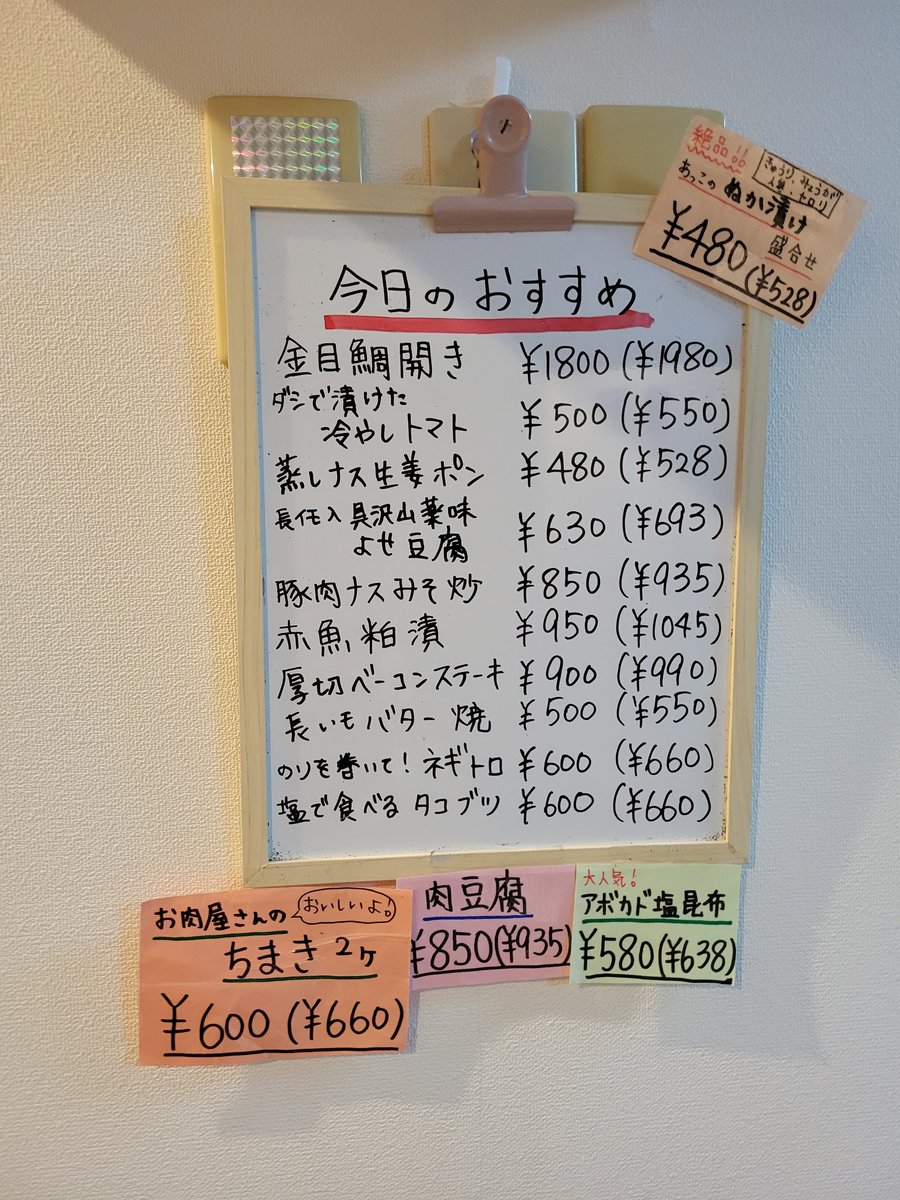 絶品!!
きゅうり、みょうが
人参、セロリ
あっこの ぬか漬け
盛合せ
¥480(¥528)
今日のおすすめ
金目鯛開き ¥1800(¥1980)
ダシで漬けた
冷やしトマト ¥500(¥550)
蒸しナス生姜ポン ¥480(¥528)
具沢山薬味
よせ豆腐 ¥630(¥693)
豚肉ナスみそ炒 ¥850(¥935)
赤魚粕漬 ¥950(¥1045)
厚切ベーコンステーキ ¥900(¥990)
長いもバター焼 ¥500(¥550)
のりを巻いて!ネギトロ ¥600(¥660)
塩で食べるタコブツ ¥600(¥660)
お肉屋さんの おいしいよ!
ちまき 2ヶ
¥600(¥660)
肉豆腐
¥850(¥935)
大人気!
アボカド塩昆布
¥580(¥638)